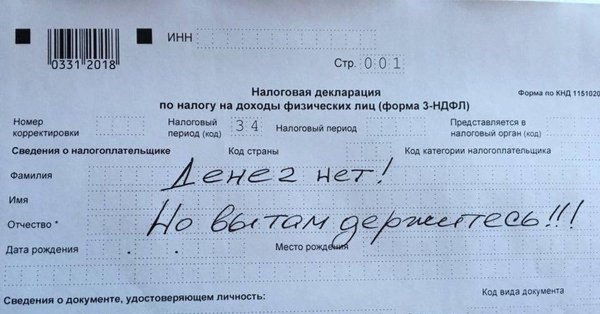 ИНН
0331 2018
Стр. 001
Налоговая декларация
по налогу на доходы физических лиц (форма 3-НДФЛ)
Форма по КНД 1151020
Номер корректировки
Налоговый период (код) 34
Налоговый период
Представляется в налоговый орган (код)
Сведения о налогоплательщике
Код страны
Код категории налогоплательщика
Фамилия
Денег нет!
Имя
Но вы там держитесь!!!
Отчество *
Дата рождения
Место рождения
Сведения о документе, удостоверяющем личность:
Код вида документа